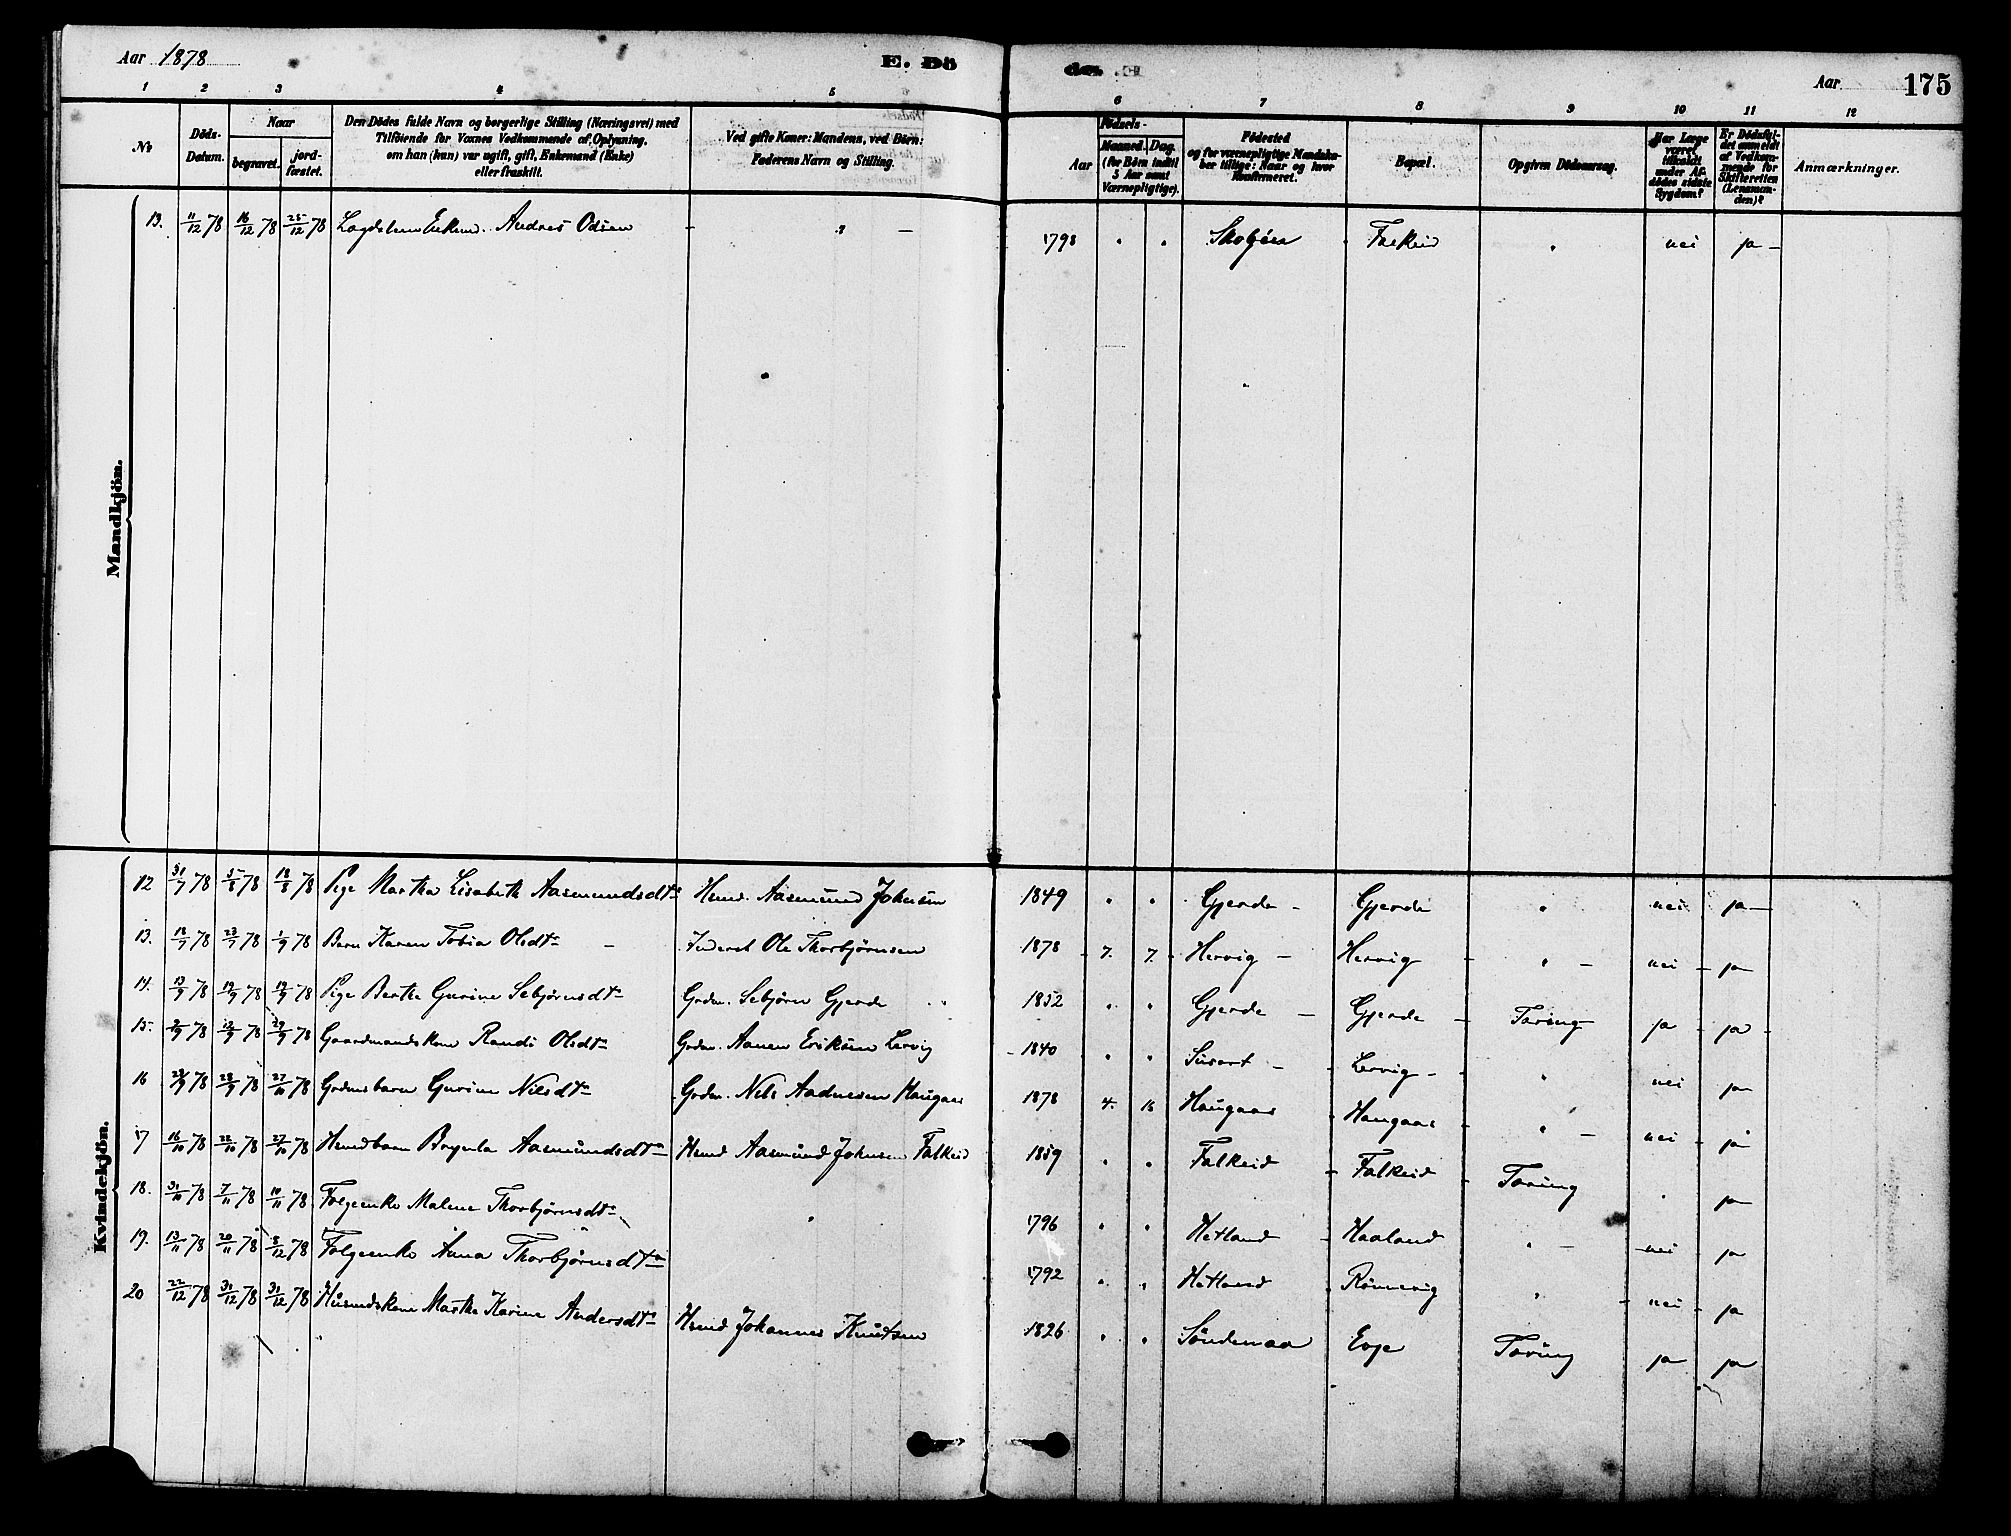 Aar 1878
E. Dö
de.
Aar
175
1 2 3 4 5 6 7 8 9 10 11 12
No
Döds-Datum.
Naar
begravet.
jord-fæstet.
Den Dödes fulde Navn og borgerlige Stilling (Næringsvei) med
Tilföiende for Voxnes Vedkommende af Oplysning,
om han (hun) var ugift, gift, Enkemand (Enke)
eller fraskilt.
Ved gifte Koner: Mandens, ved Börn:
Faderens Navn og Stilling.
Födsels-
Aar
Maaned. Dag.
(for Börn indtil
5 Aar samt
Værnepligtige).
Födested
og for værnepligtige Mandska-
ber tillige: Naar og hvor
Konfirmeret.
Bopæl.
Opgiven Dödsaarsag.
Har Læge
været
tilkaldt
under Af-
dödes sidste
Sygdom?
Er Dödsfal-
det anmeldt
af Vedkom-
mende for
Skifteretten
(Lensman-
den)?
Anmærkninger.
Mandkjön.
13. 11/12 78 16/12 78 25/12 78 Andres Odsen - " - 1798 " " Falkeid " nei ja -
Kvindekjön.
12 31/7 78 5/8 78 18/8 78 Pige Martha Lisabeth Aasmundsdtr Hmd. Aasmund Johnsen 1849 " " Gjerde - Gjerde " nei ja -
13. 18/7 78 23/7 78 1/9 78 Barn Karen Tobia Olsdtr - Inderst Ole Thorbjørnsen 1878 7. 7. Hervig - Hervig - " - nei - ja
14. 13/9 78 19/9 78 19/9 78 Pige Berthe Gurine Sebjørnsdtr Grdm. Sebjørn Gjerde 1852 " " Gjerde - Gjerde - Tæring ja - ja -
15. 9/9 78 13/9 78 29/9 78 Gaardmandskone Randi Olsdtr Grdm. Aanen Eriksen Lervig 1840 " " - Lervig - " nei ja
16 23/9 78 28/9 78 27/10 78 Grdmsbarn Gurine Nilsdtr Grdm. Nils Aadnesen Haugaas 1878 4. 16 Haugaas - Haugaas - " - nei - ja
17 16/10 78 22/10 78 27/10 78 Hmdbarn Aasmundsdtr Hmd Aasmund Johnsen Falkeid 1859 " " Falkeid - Falkeid - Tæring " ja
18. 31/10 78 7/11 78 10/11 78 Folgeenke Malene Thorbjørnsdtr " 1796 " " Hetland - Haaland " - nei - ja
19. 13/11 78 20/11 78 8/12 78 Folgeenke Anna Thorbjørnsdtr 1792 " " Hetland - " - nei - ja
20 22/12 78 31/12 78 31/12 78 Husmdskone Marthe Karine Andersdtr Hsmd Johannes Knutsen 1826 " " Söndenaa Erge Tæring ja ja